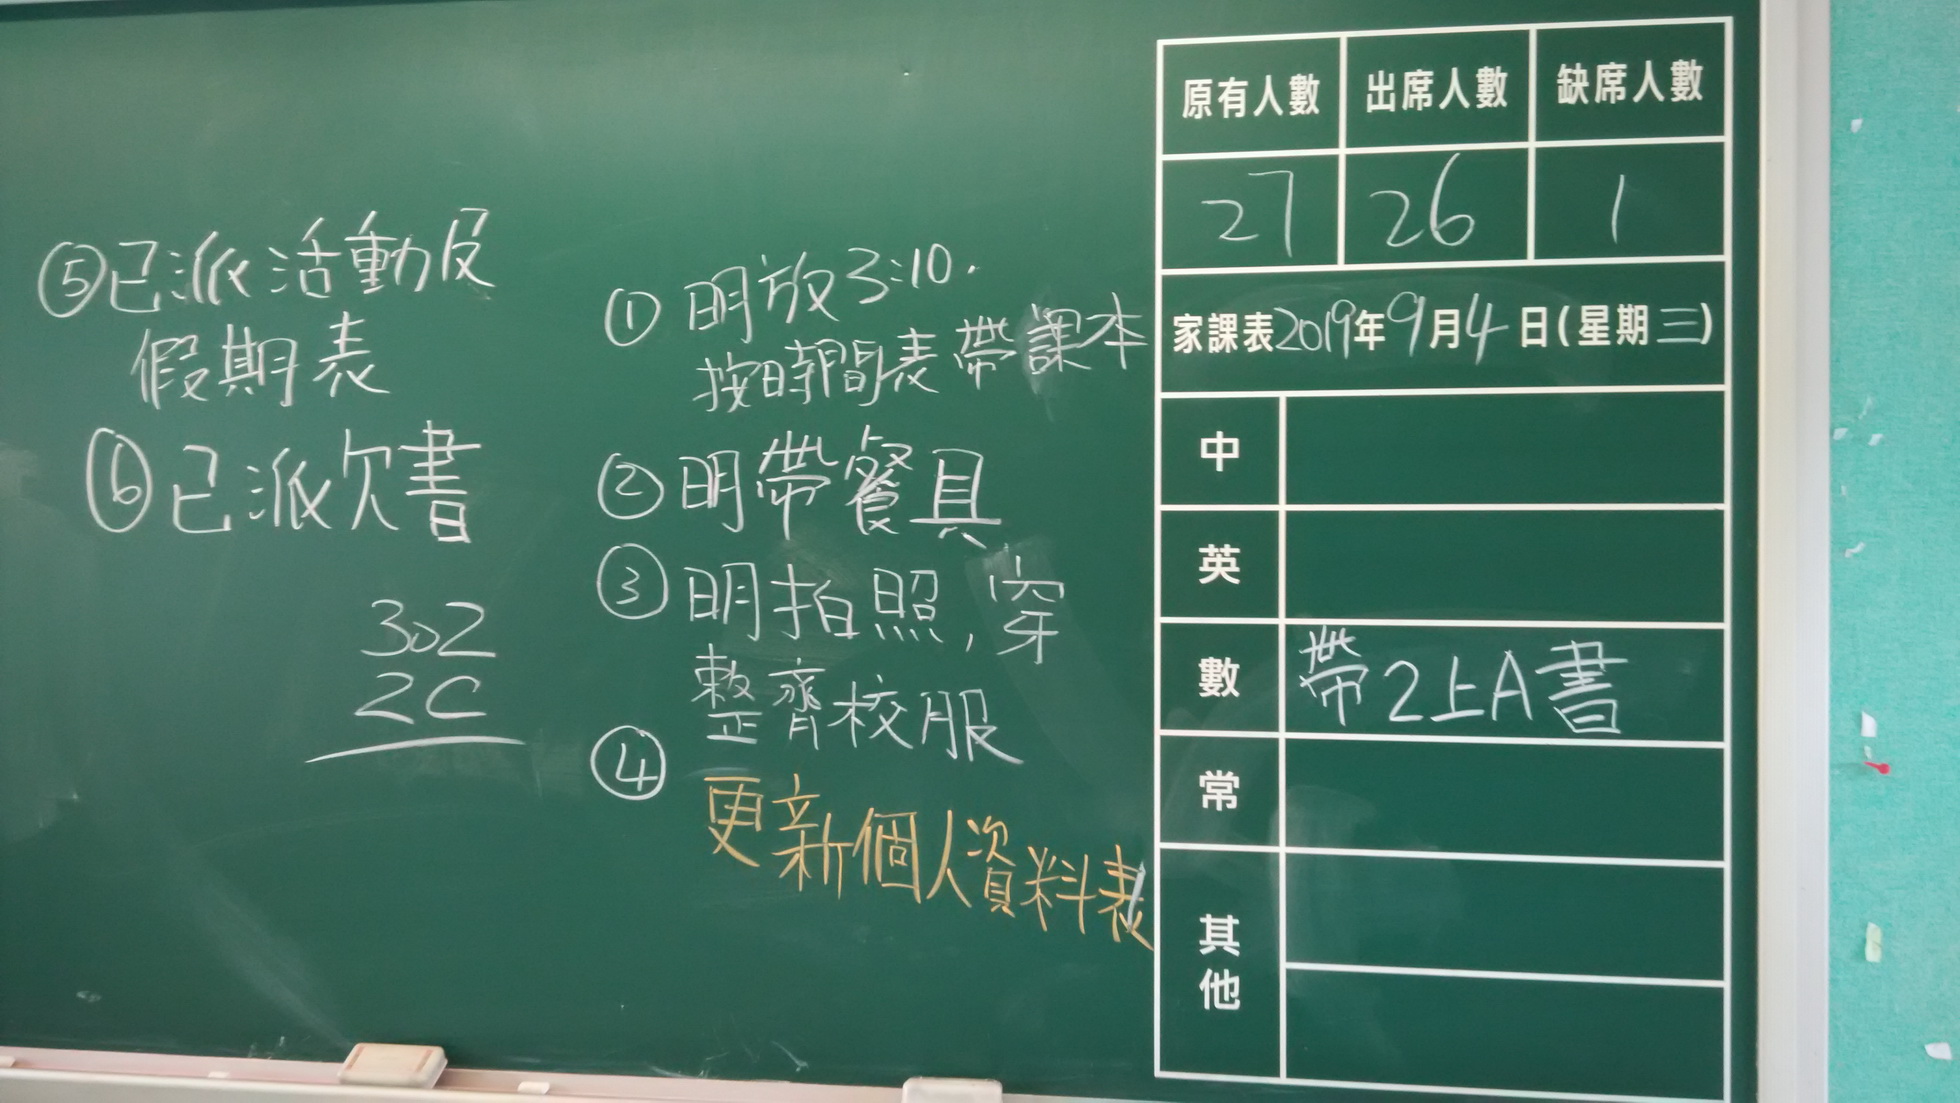 ⑤已派活動及
假期表
⑥已派欠書
302
2C
①明放3:10.
按時間表帶課本
②明帶餐具
③明拍照,穿
整齊校服
④
更新個人資料表
原有人數 出席人數 缺席人數
27 26 1
家課表2019年9月4日(星期三)
中
英
數 帶2上A書
常
其他